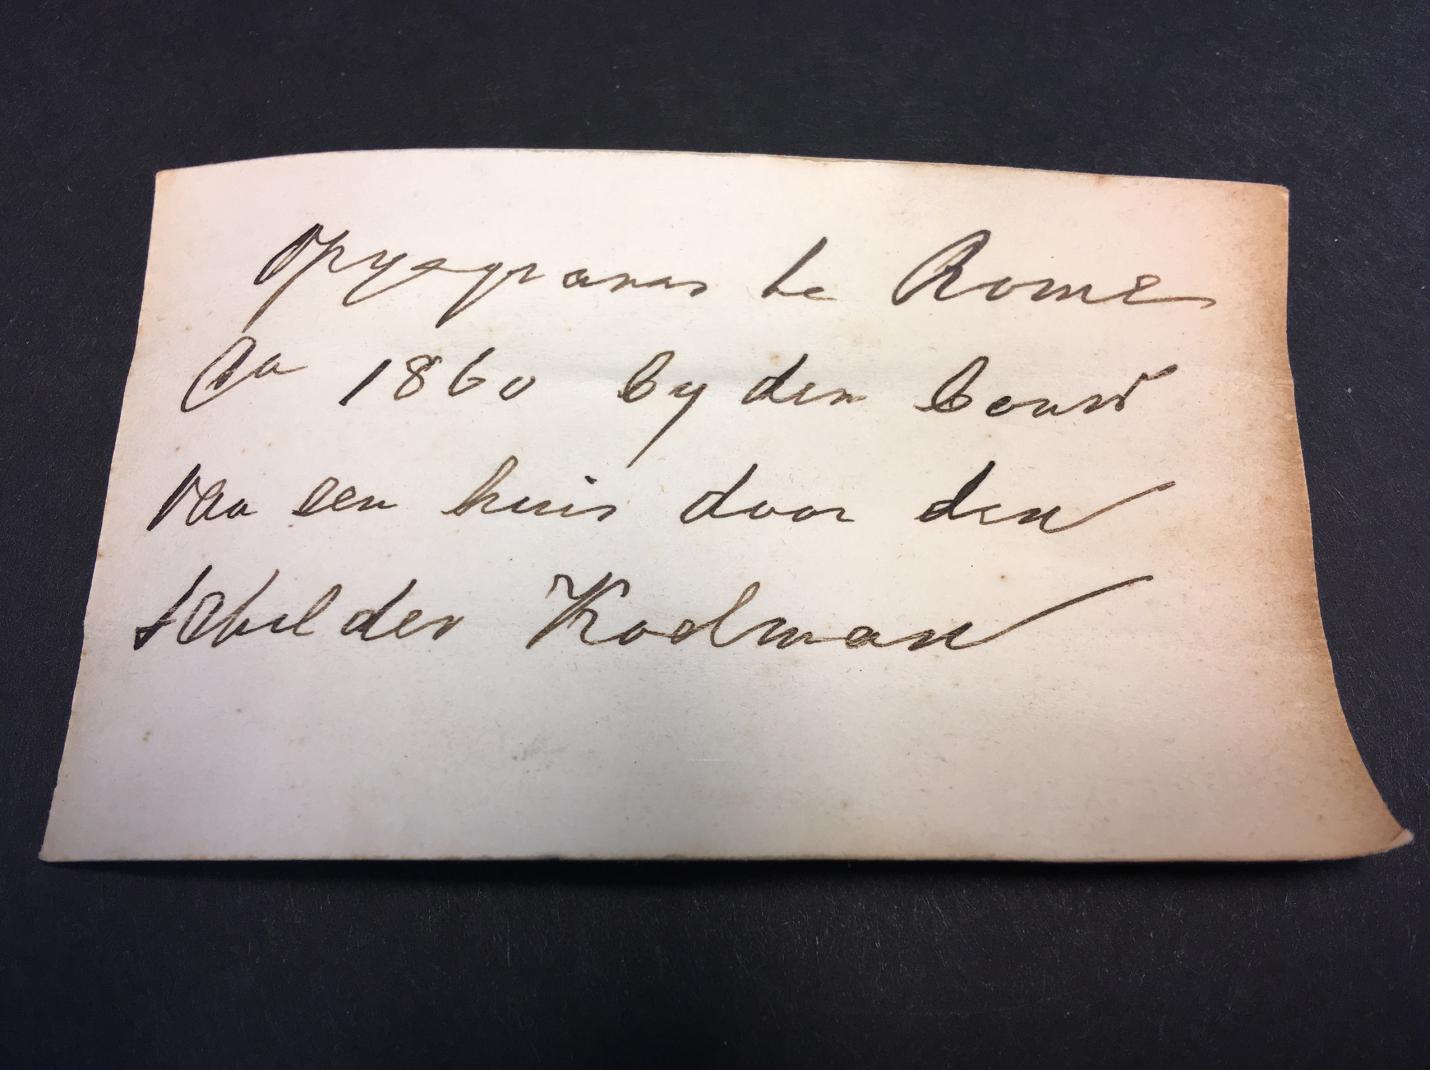 opgegraven te Rome
Ca 1860 by den bouw
van een huis door den
schilder Koelman